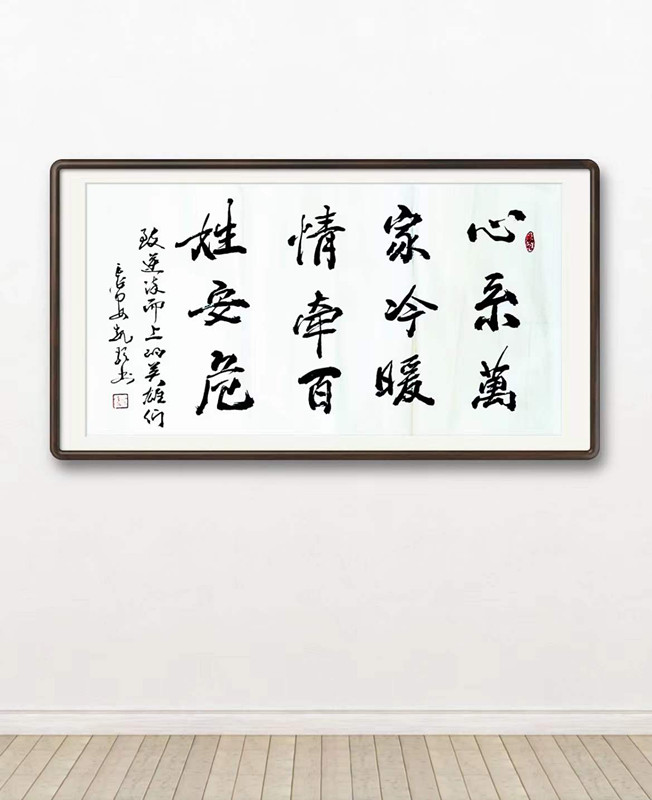 心系萬
家冷暖
情牽百
姓安危
致逆流而上的英雄们